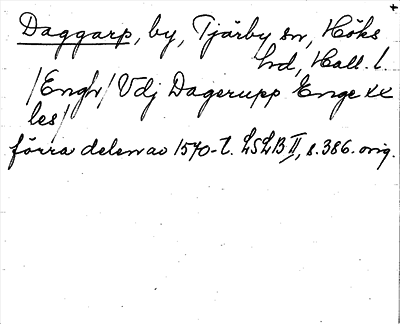 Daggarp, by, Tjärby sn, Höks
hd, Hall. l.
/Engh/ Vdj Dagerupp Enge xx
les/
förra delen av 1570-t. LSLB II, s. 386. orig.